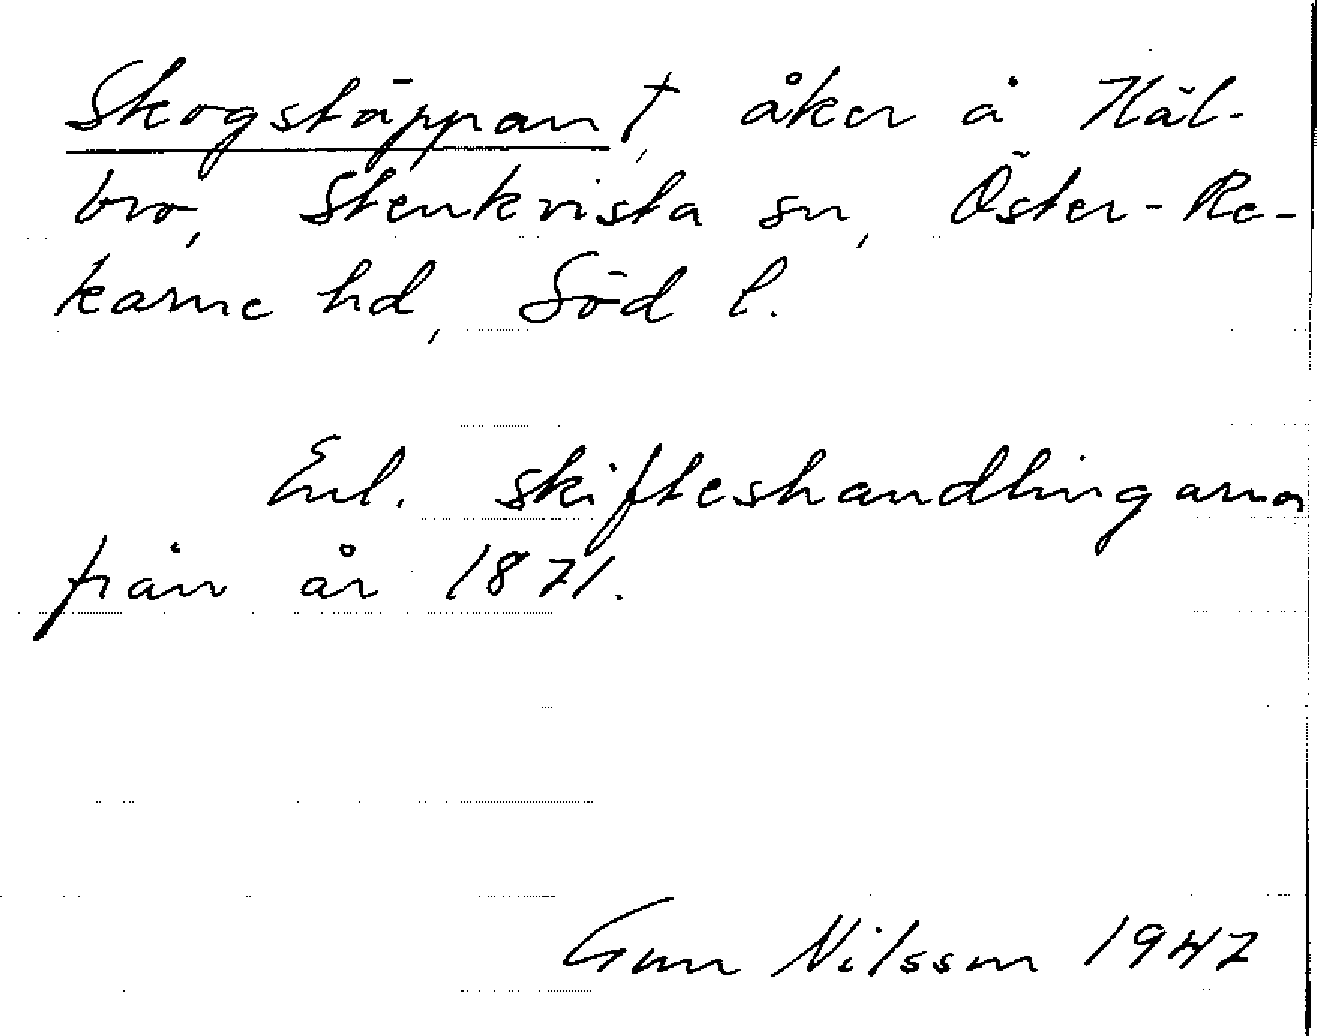 Skogstäppan †, åker å Häl-
bro, Stenkvista sn, Öster-Re-
karne hd, Söd l.
Enl. skifteshandlingarna
från år 1871.
Gun Nilsson 1947